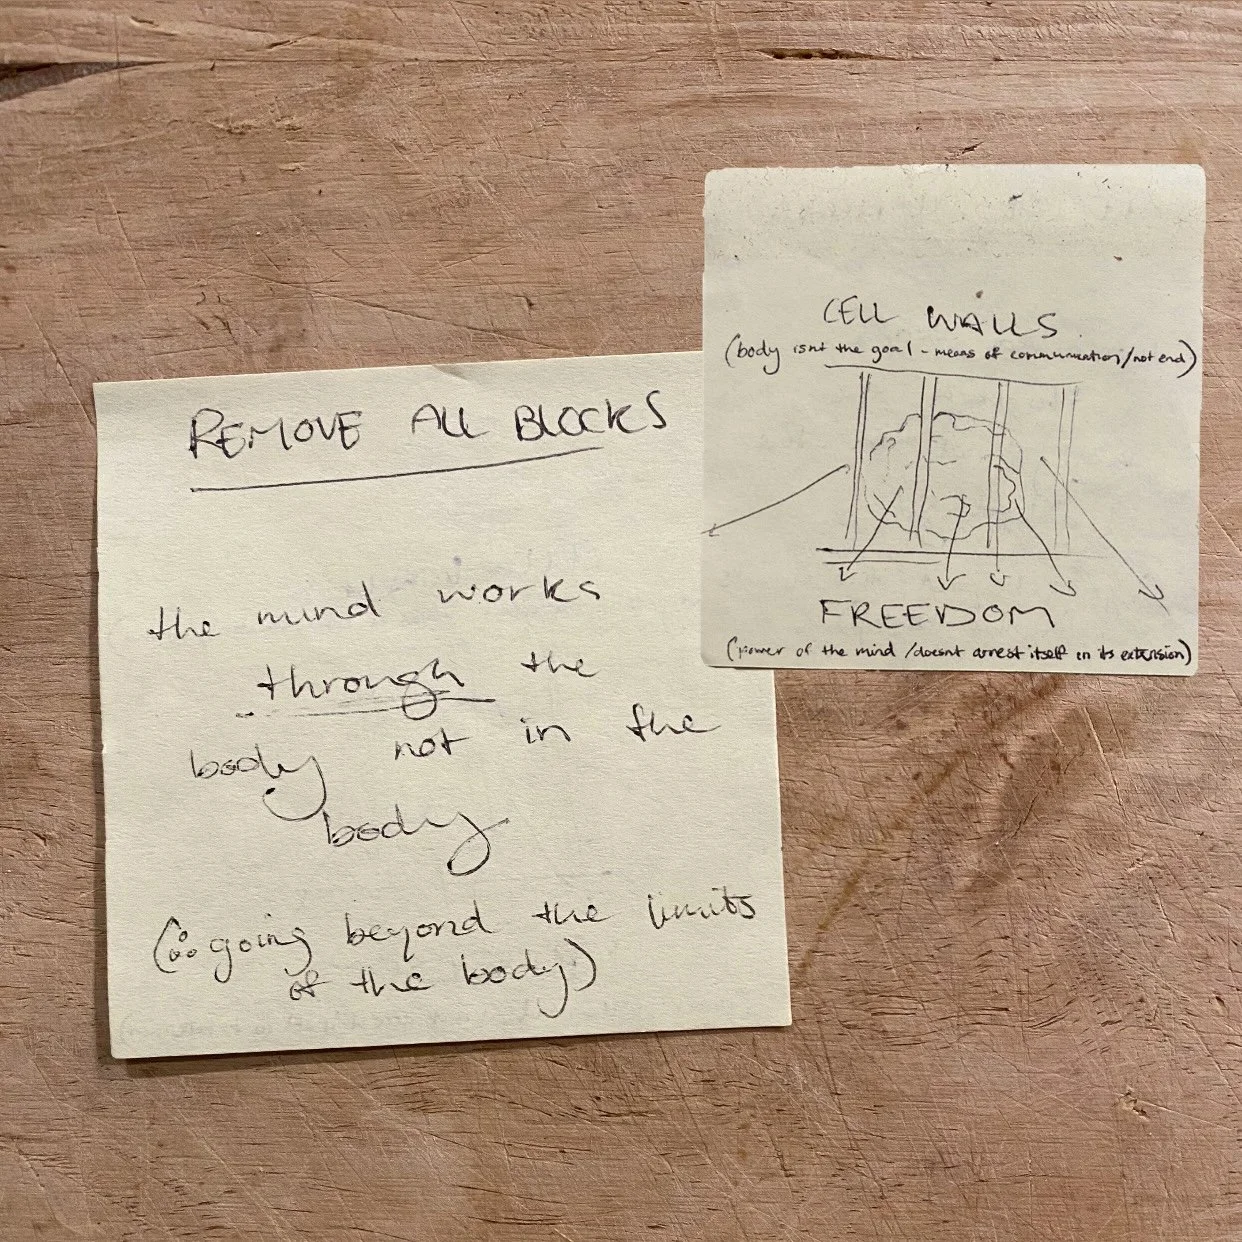 REMOVE ALL BLOCKS
the mind works
through the
body not in the
body
(∴ going beyond the limits
of the body)
CELL WALLS
(body isnt the goal - means of communication/not end)
FREEDOM
(power of the mind /doesnt arrest itself in its extension)